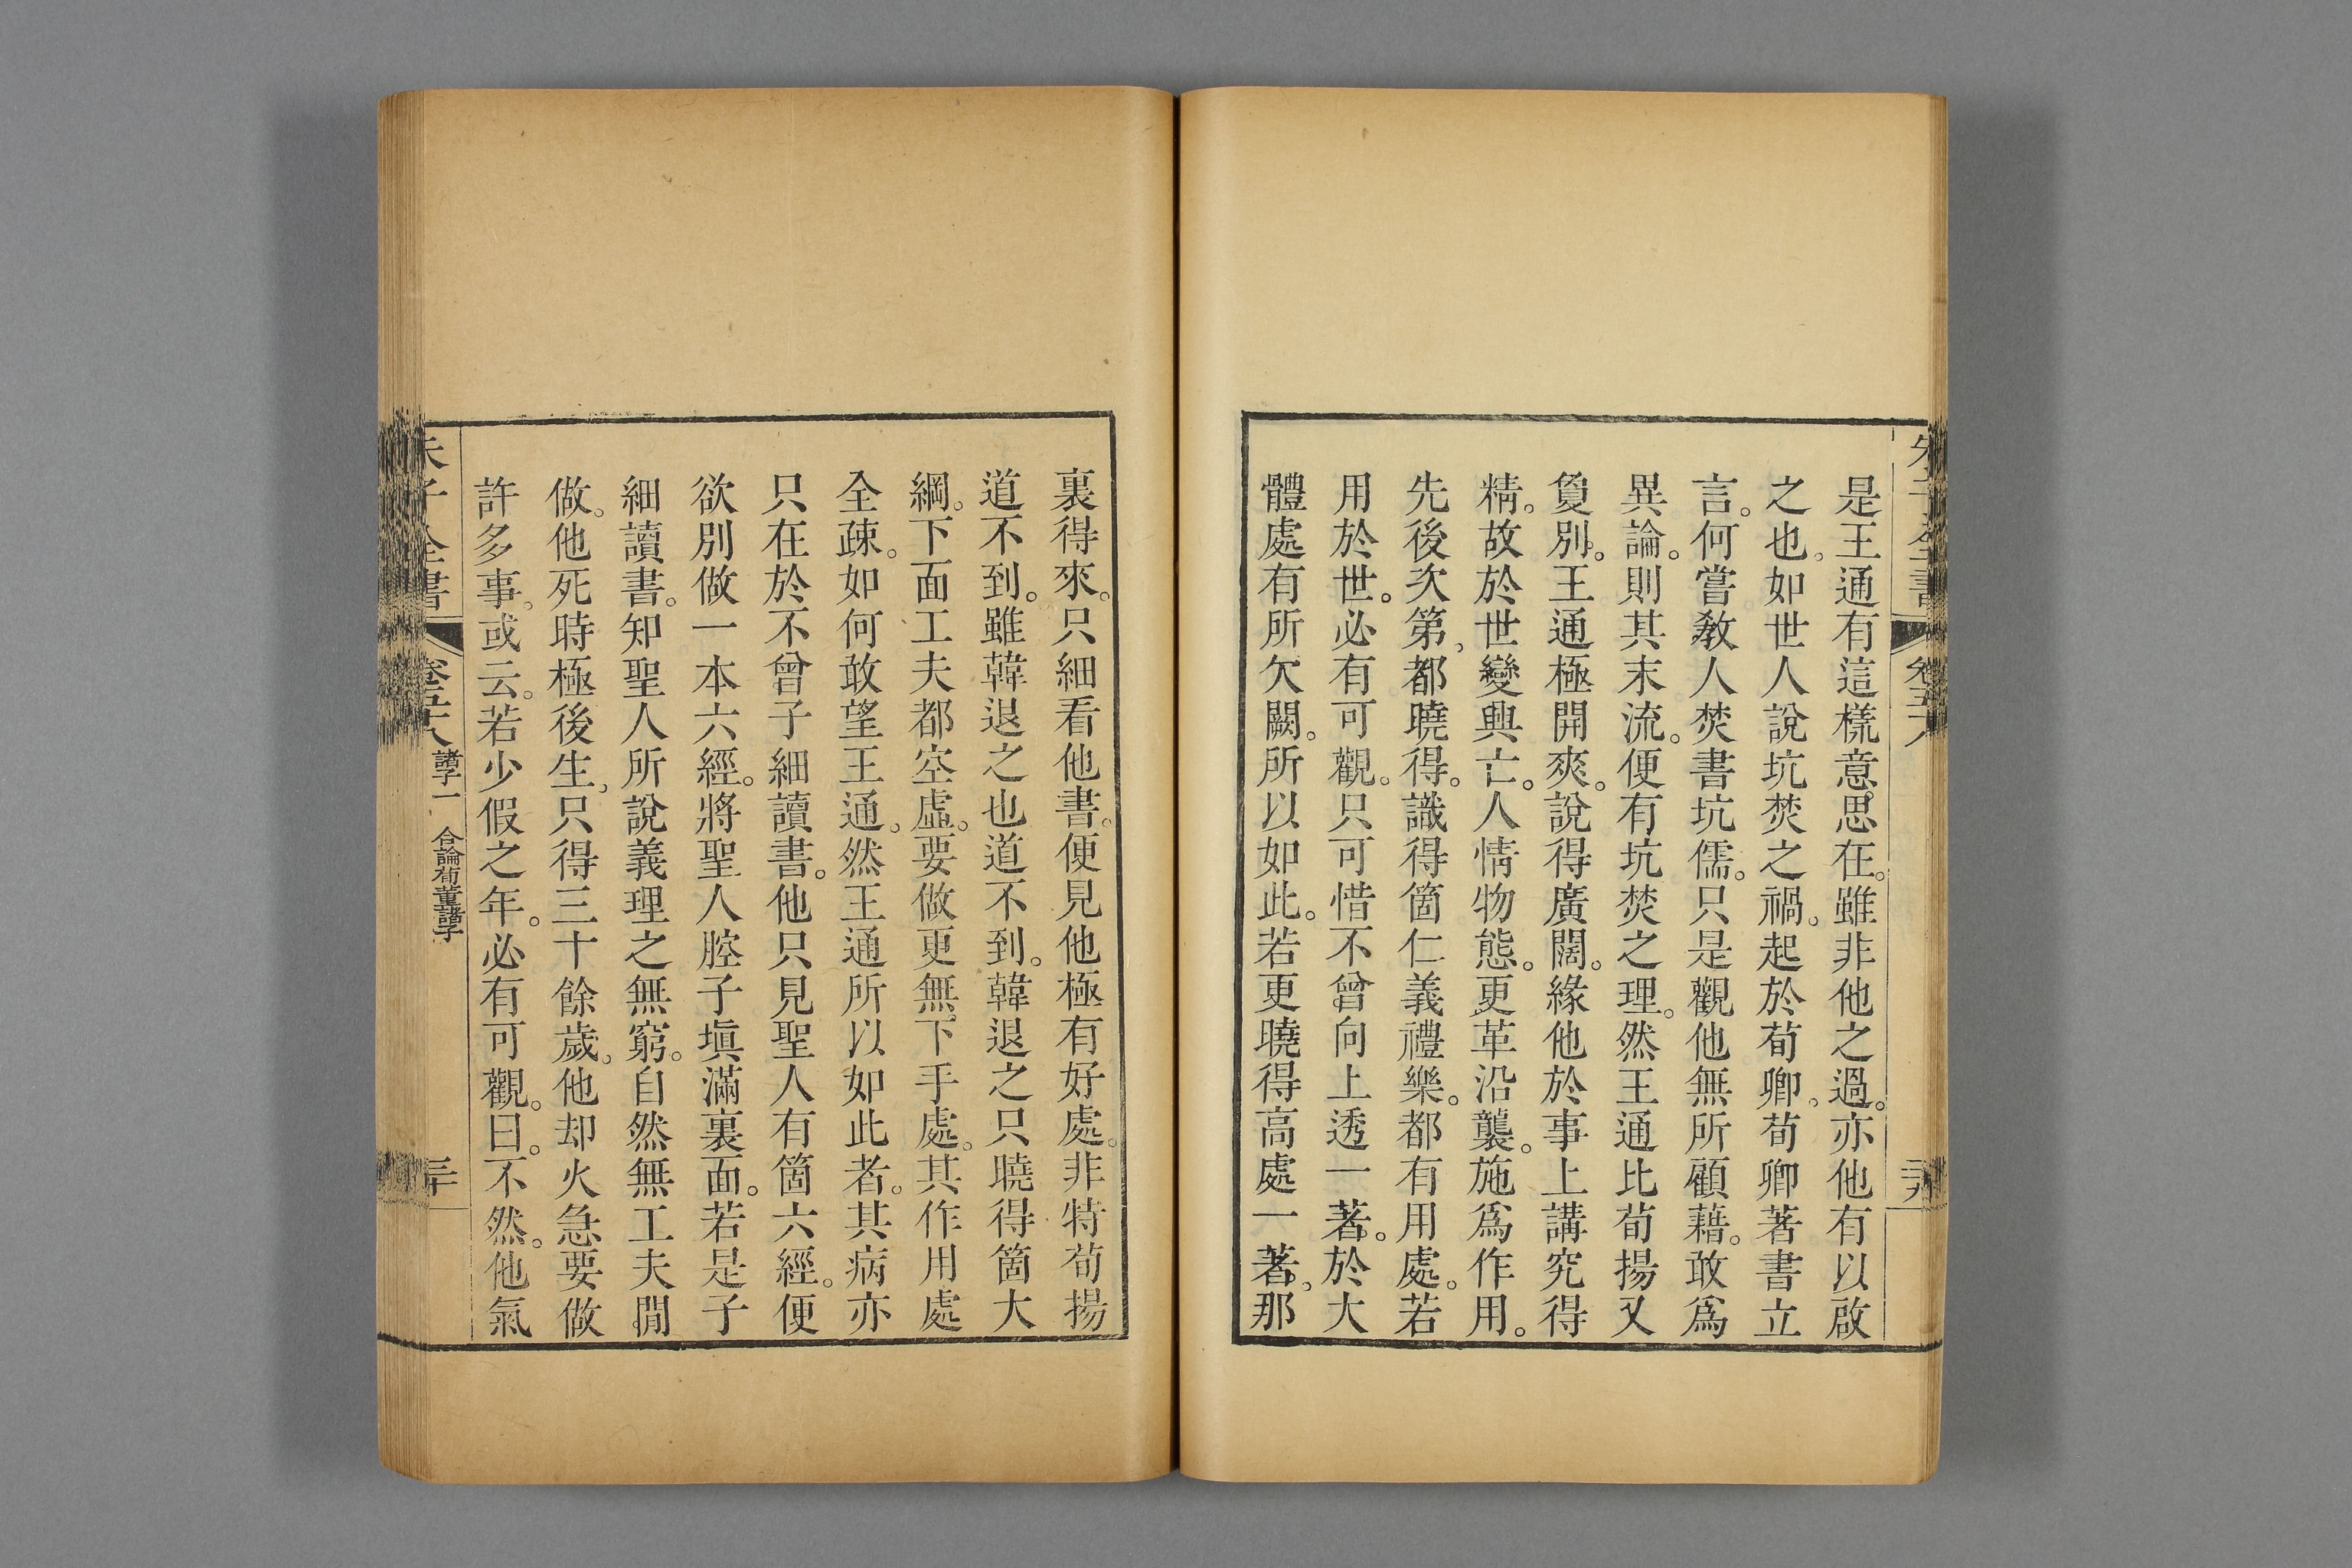 是王通有這樣意思在。雖非他之過。亦他有以啟
之也。如世人說坑焚之禍。起於荀卿。荀卿著書立
言。何嘗教人焚書坑儒。只是觀他無所顧藉。敢為
異論。則其末流。便有坑焚之理。然王通比荀揚又
敻別。王通極開爽。說得廣闊。緣他於事上講究得
精。故於世變興亡。人情物態。更革沿襲。施為作用。
先後次第。都曉得。識得箇仁義禮樂。都有用處。若
用於世。必有可觀。只可惜不曾向上透一著。於大
體處有所欠闕。所以如此。若更曉得高處一著。那
裏得來。只細看他書。便見他極有好處。非特荀揚
道不到。雖韓退之也道不到。韓退之只曉得箇大
綱。下面工夫都空虛。要做更無下手處。其作用處
全疎。如何敢望王通。然王通所以如此者。其病亦
只在於不曾子細讀書。他只見聖人有箇六經。便
欲別做一本六經。將聖人腔子塡滿裏面。若是子
細讀書。知聖人所說義理之無窮。自然無工夫閒
做。他死時極後生。只得三十餘歲。他却火急要做
許多事。或云。若少假之年。必有可觀。曰。不然。他氣
朱子全書 卷五十八 諸子一 合論荀董諸子 三十